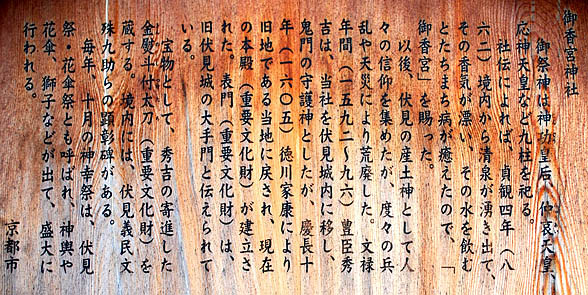 御香宮神社
御祭神は神功皇后、仲哀天皇、
応神天皇など九柱を祀る。
社伝によれば、貞観四年（八
六二）境内から清泉が湧き出て、
その香気が漂い、その水を飲む
とたちまち病が癒えたので、「
御香宮」を賜った。
以後、伏見の産土神として人
々の信仰を集めたが、度々の兵
乱や天災により荒廃した。文禄
年間（一五九二～九六）豊臣秀
吉は、当社を伏見城内に移し、
鬼門の守護神としたが、慶長十
年（一六〇五）徳川家康により
旧地である当地に戻され、現在
の本殿（重要文化財）が建立さ
れた。表門（重要文化財）は、
旧伏見城の大手門と伝えられて
いる。
宝物として、秀吉の寄進した
金熨斗付太刀（重要文化財）を
蔵する。境内には、伏見義民文
殊九助らの顕彰碑がある。
毎年、十月の神幸祭は、伏見
祭・花傘祭とも呼ばれ、神輿や
花傘、獅子などが出て、盛大に
行われる。
京都市